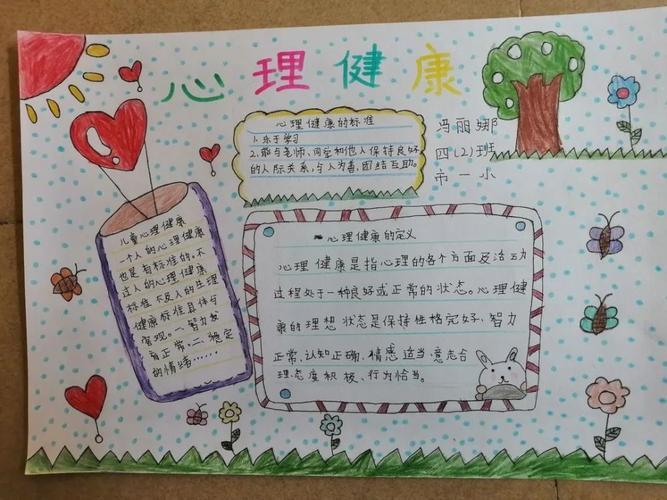 心理健康
心理健康的标准
1.乐于学习
2.能与老师、同学和他人保持良好
的人际关系,与人为善,团结互助。
冯丽娜
四(2)班
市一小
儿童心理健康
一个人的心理健康
也是有标准的,不
过人的心理健康
标准不及人的生理
健康标准具体与
客观。一、智力发
育正常。二、稳定
的情绪……
心理健康的定义
心理健康是指心理的各个方面及活动
过程处于一种良好或正常的状态。心理健
康的理想状态是保持性格完好、智力
正常、认知正确、情感适当、意志合
理、态度积极、行为恰当。